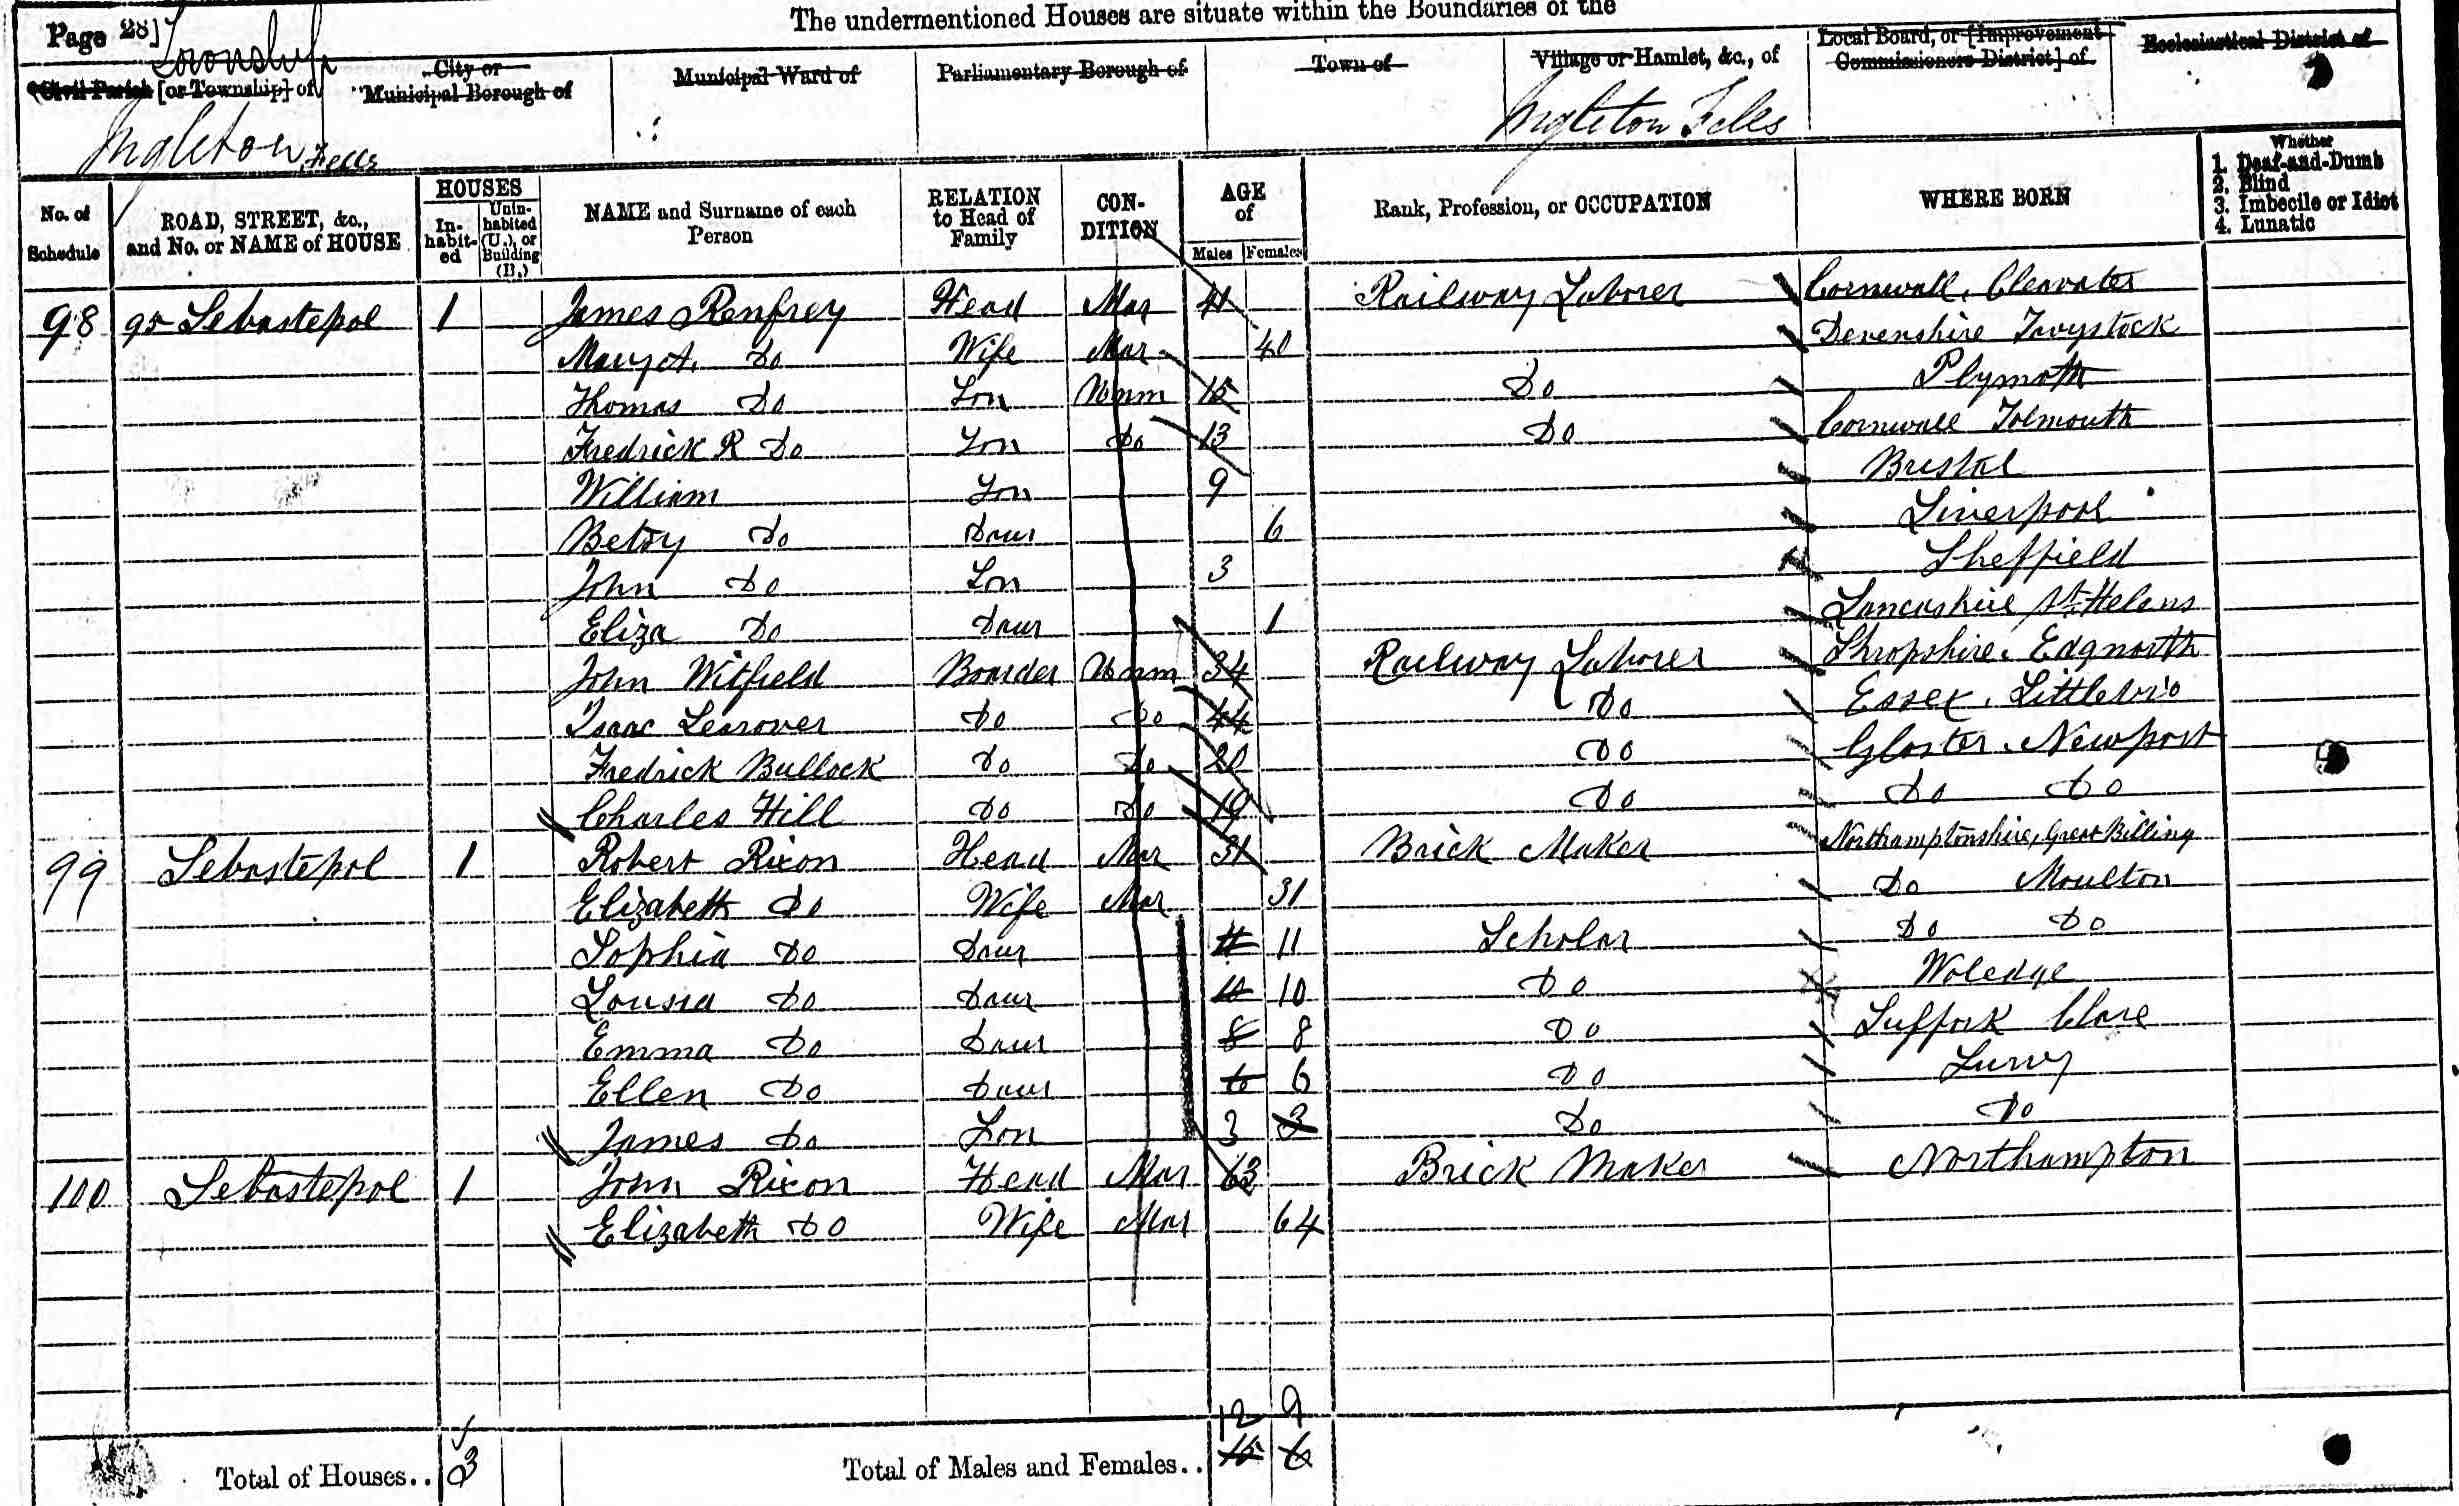 The undermentioned Houses are situate within the Boundaries of the
Page 28]
Township
Civil Parish [or Township] of
City or Municipal Borough of
Municipal Ward of
Parliamentary Borough of
Town of
Village or Hamlet, &c., of
Local Board, or [Improvement Commissioners District] of
Ecclesiastical District of
Ingleton Fells
Ingleton Fells
No. of Schedule
ROAD, STREET, &c., and No. or NAME of HOUSE
HOUSES
In-habit-ed
Unin-habited (U.), or Building (B.)
NAME and Surname of each Person
RELATION to Head of Family
CON-DITION
AGE of
Males Females
Rank, Profession, or OCCUPATION
WHERE BORN
Whether
1. Deaf-and-Dumb
2. Blind
3. Imbecile or Idiot
4. Lunatic
98 95 Sebastepol 1 James Renfrey Head Mar 41 Railway Laborer Cornwall, Cleavater
Mary A. Do Wife Mar 40 Devenshire Tavystock
Thomas Do Son Unm 15 Do Plymoth
Fredrick R Do Son Do 13 Do Cornwall Folmouth
William Son 9 Bristol
Betsy Do Daur 6 Liverpool
John Do Son 3 Sheffield
Eliza Do Daur 1 Lancashire St Helens
John Witfield Boarder Unm 34 Railway Laborer Shropshire. Edgnorth
Isaac Do Do 44 Do Essex.
Fredrick Bullock Do Do 20 Do Gloster. Newport
Charles Hill Do Do 19 Do Do Do
99 Sebastepol 1 Robert Rixon Head Mar 31 Brick Maker Northamptonshire, Great Billing
Elizabeth Do Wife Mar 31 Do Moulton
Sophia Do Daur 11 11 Scholar Do Do
Lousia Do Daur 10 10 Do Woledge
Emma Do Daur 8 8 Do Suffork Clare
Ellen Do Daur 6 6 Do Surry
James Do Son 3 3 Do Do
100 Sebastepol 1 John Rixon Head Mar 63 Brick Maker Northampton
Elizabeth Do Wife Mar 64
12 9
Total of Houses.. 3 Total of Males and Females.. 15 6